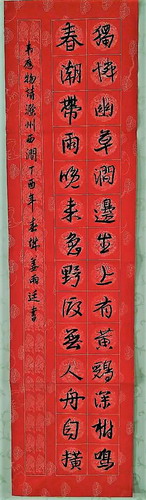 獨憐幽草澗邊生上有黃鸝深樹鳴
春潮帶雨晚來急野渡無人舟自橫
韦應物詩滁州西澗丁酉年春姜雨書